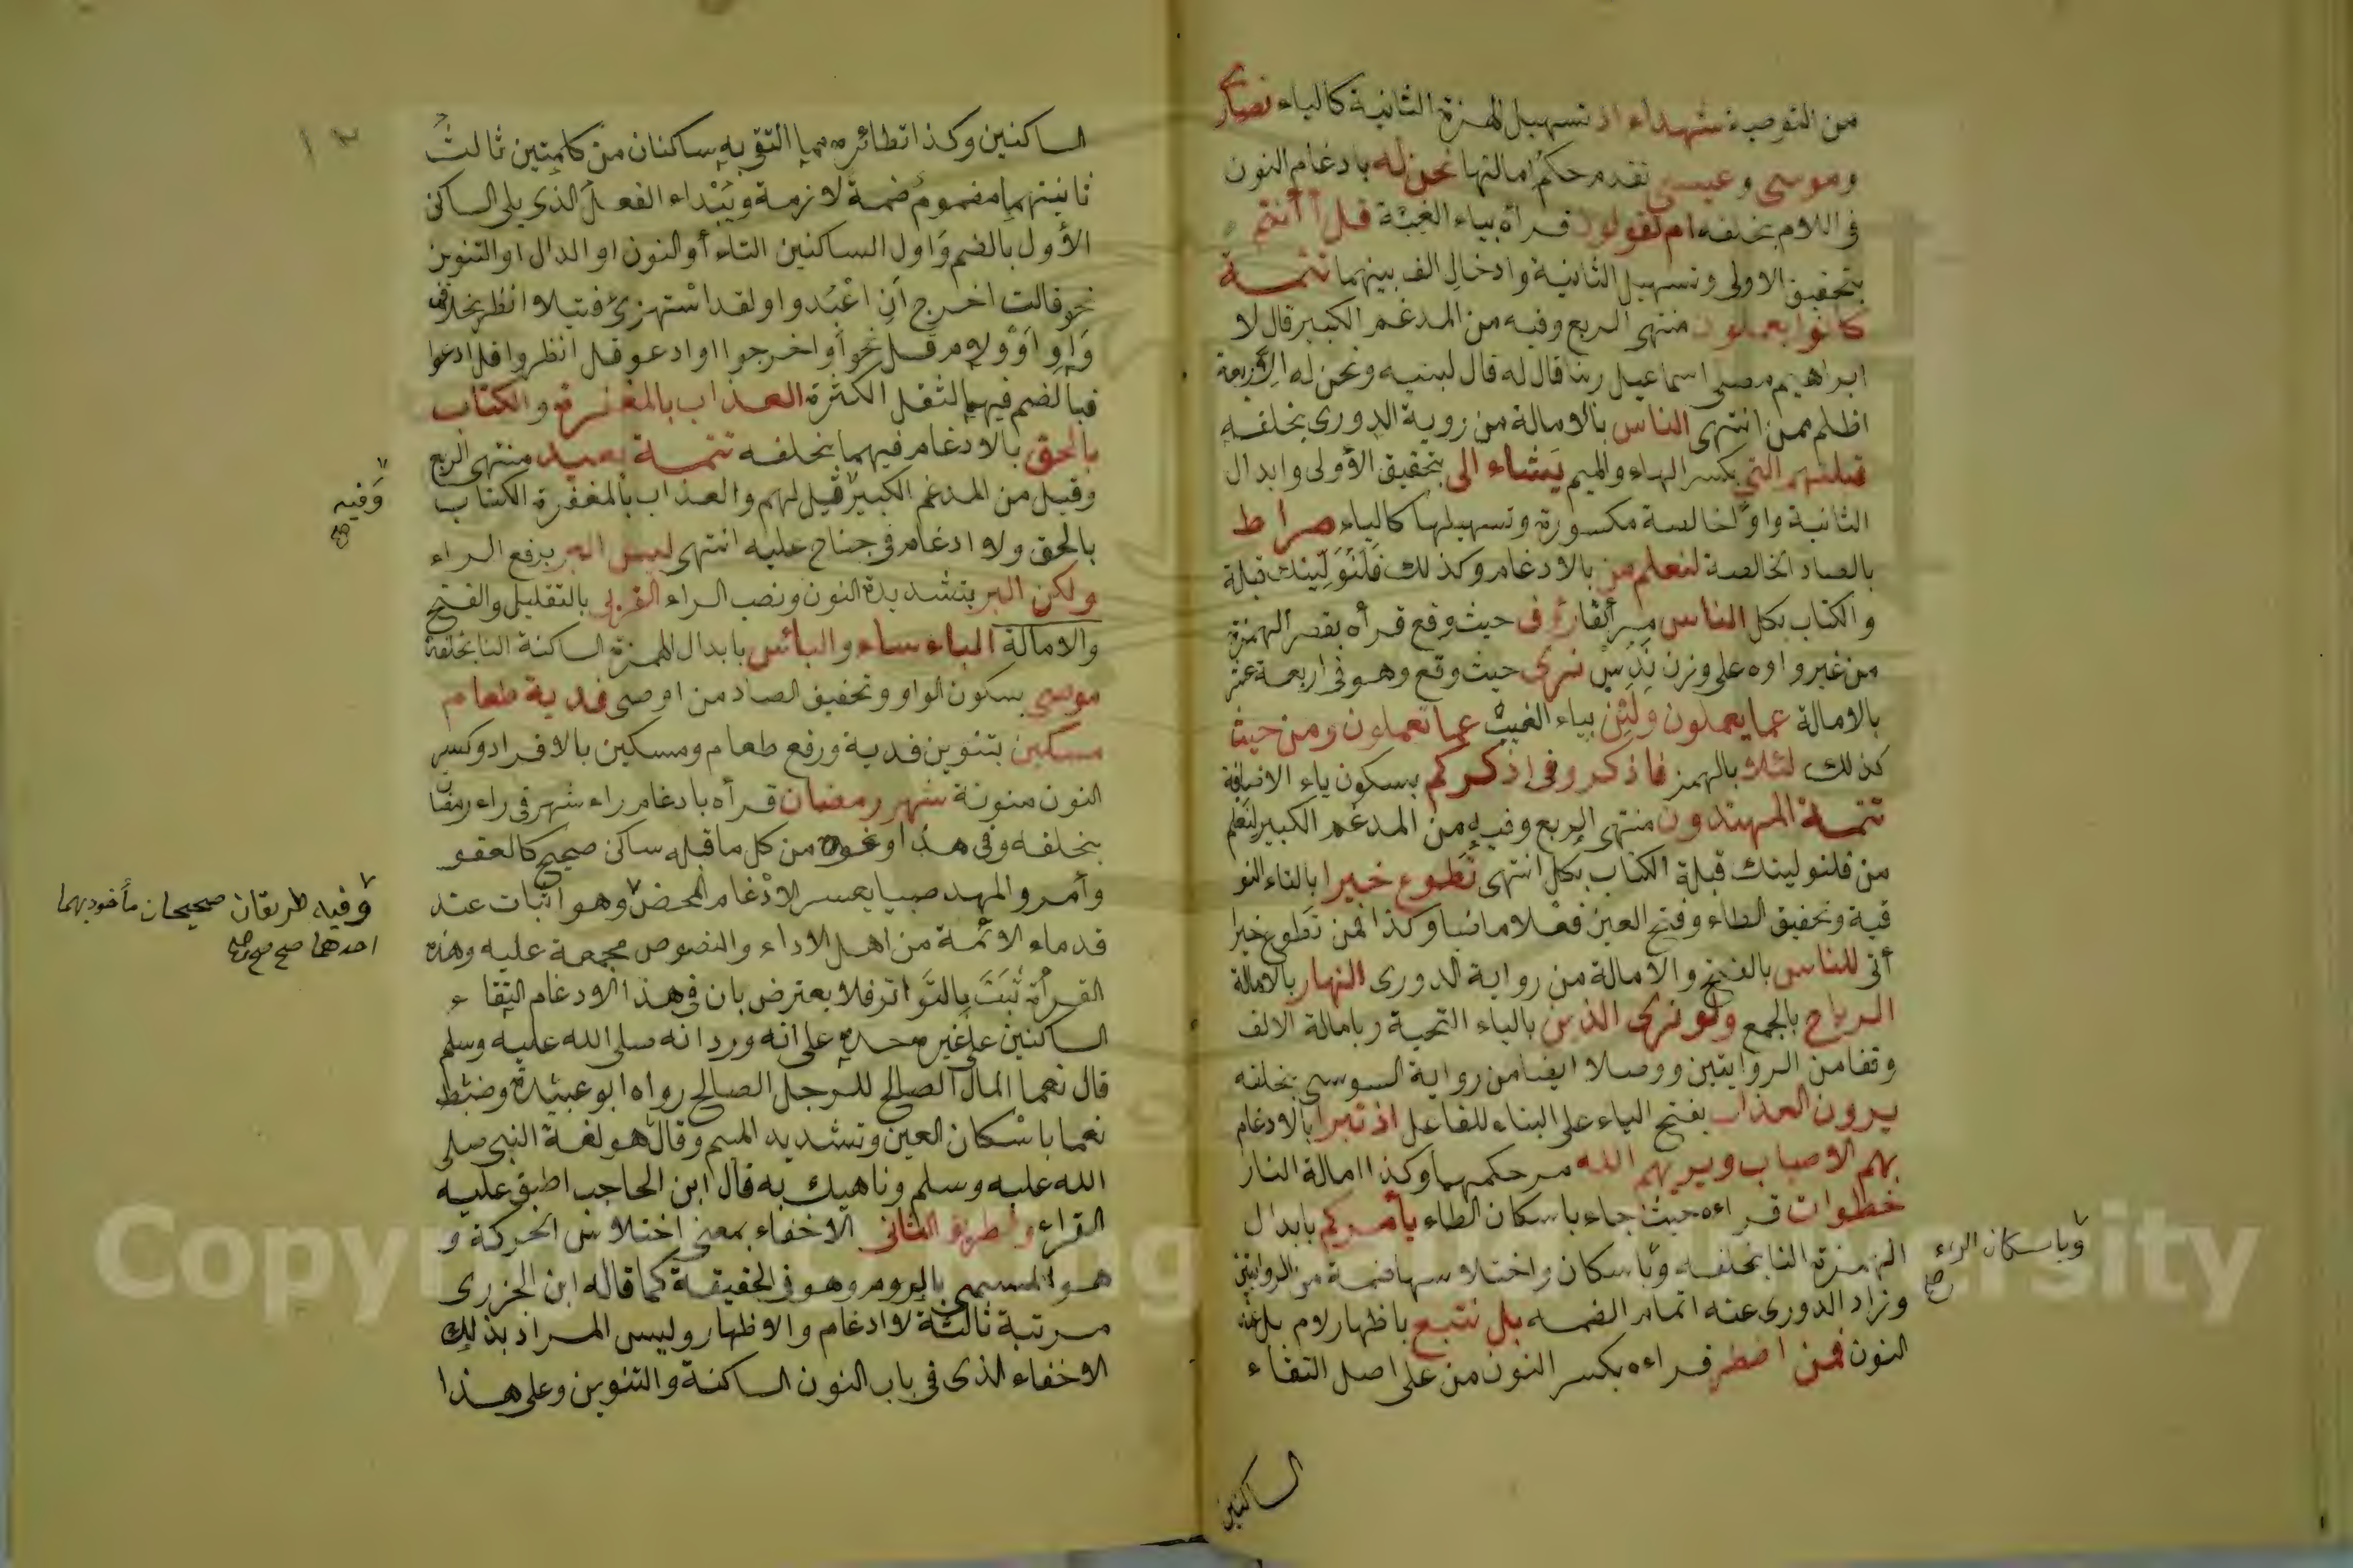 من التوصية شهداء اذ تسهيل الهمزة الثانية كالياء نصارى
وموسى وعيسى تقدم حكم امالتها نحن له بادغام النون
فى اللام بخلفه ام تقولون قرأه بياء الغيبة قل أأنتم
بتحقيق الاولى وتسهيل الثانية وادخال الف بينهما تتمـة
كانوا يعملون منتهى الربع وفيه من المدغم الكبير قال لا
ابراهيم مصلى اسماعيل ربنا قال له قال لبنيه ونحن له الأربعة
اظلم ممن انتهى الناس بالامالة من روية الدورى بخلفه
قبلتهم التى بكسر الهاء والميم يشاء الى بتحقيق الأولى وابدال
الثانية واوًا خالصة مكسورة وتسهيلها كالياء صراط
بالصاد الخالصة لنعلم من بالادغام وكذلك فلَنُوَلِّينك قبلة
والكتاب بكل الناس مر أنفا رؤف حيث وقع قرأه بقصر الهمزة
من غير واوه على وزن نَدُسٍ نرى حيث وقع وهو فى اربعة عشر
بالامالة عما يعملون ولئن بياء الغيب عما تعملون ومن حيث
كذلك لئلا بالهمز فاذكرونى اذكركم بسكون ياء الاضافة
تتمـة المهتدون منتهى الربع وفيه من المدغم الكبير لنعلم
من فلنولينك قبلة الكتاب بكل انتهى تطوع خيرا بالتاء الفو
قية وتخفيف الطاء وفتح العين فعلا ماضيا وكذا فمن تطوع خيرا
أتى للناس بالفتح والامالة من رواية الدورى النهار بالامالة
الرياح بالجمع ولو نرى الذين بالياء التحية وبامالة الالف
وقفا من الروايتين ووصلا ايضا من رواية السوسى بخلفه
يرون العذاب بفتح الياء على البناء للفاعل اذ تبرا بالادغام
بهم الاسباب ويريهم الله مر حكمهما وكذا امالة النار
خطوات قراءه حيث جاء باسكان الطاء يأمركم بابدال
الهمزة الفا بخلفه وباسكان واختلاسها ضمة من الروايتين
وباسكان الراء صح
وزاد الدورى عنه اتمام الضمه بل نتبع باظهار لام بل عند
النون فمن اضطر قراءه بكسر النون من على اصل التقاء
الساكنين
١٢
الساكنين وكذا نظائره مما التقى به ساكنان من كلمتين ثالث
ثانيتهما مضموم ضمة لازمة ويُبْداء الفعل الذى يلى الساكن
الأول بالضم وأول الساكنين التاء أو النون او الدال او التنوين
نحو قالت اخرج أن اعْبُدوا ولقد استهزئ فتيلا انظر بخلاف
واو أوْ ولام قل نحو أو اخرجوا او ادعو قل انظروا قل ادعوا
فبالضم فيهما لثقل الكثرة العذاب بالمغفرة والكتاب
بالحق بالادغام فيهما بخلفه تتمـة بعيد منتهى الربع
وفيه صح
وقيل من المدغم الكبير قيل لهم والعذاب بالمغفرة الكتاب
بالحق ولا ادغام فى جناح عليه انتهى ليس البر برفع الراء
ولكن البر بتشديدة النون ونصب الراء القربى بالتقليل والفتح
والامالة الباءساء والبأس بابدال الهمزة الساكنة الفا بخلفه
موصى بسكون الواو وتخفيف الصاد من اوصى فدية طعام
مسكين بتنوين فدية ورفع طعام ومسكين بالافراد وكسر
النون منونة شهر رمضان قرأه بادغام راء شهر فى راء رمضان
بخلفه وفى هذا ونحوه من كل ما قبله ساكن صحيح كالعفو
وأمر والمهد صبيا يعسر الادغام المحض وهو اثبات عند
وفيه طريقان صحيحان مأخوذ بهما
احدهما صح صح صح
قدماء الائمة من اهل الاداء والنصوص مجمعة عليه وهذه
القرأة ثبتت بالتواتر فلا يعترض بان فى هذا الادغام التقاء
الساكنين على غير حده على انه ورد انه صلى الله عليه وسلم
قال نعما المال الصالح للرجل الصالح رواه ابو عبيدة وضبط
نعما باسْكان العين وتشديد الميم وقال هو لغة النبى صلى
الله عليه وسلم وناهيك به قال ابن الحاجب اطبق عليه
القراء والطريق الثانى الاخفاء بمعنى اختلاس الحركة و
هو المسمى بالروم وهو فى الحقيقة كما قاله ابن الجزرى
مرتبة ثالثة لا ادغام والاظهار وليس المراد بذلك
الاخفاء الذى فى باب النون الساكنة والتنوين وعلى هذا